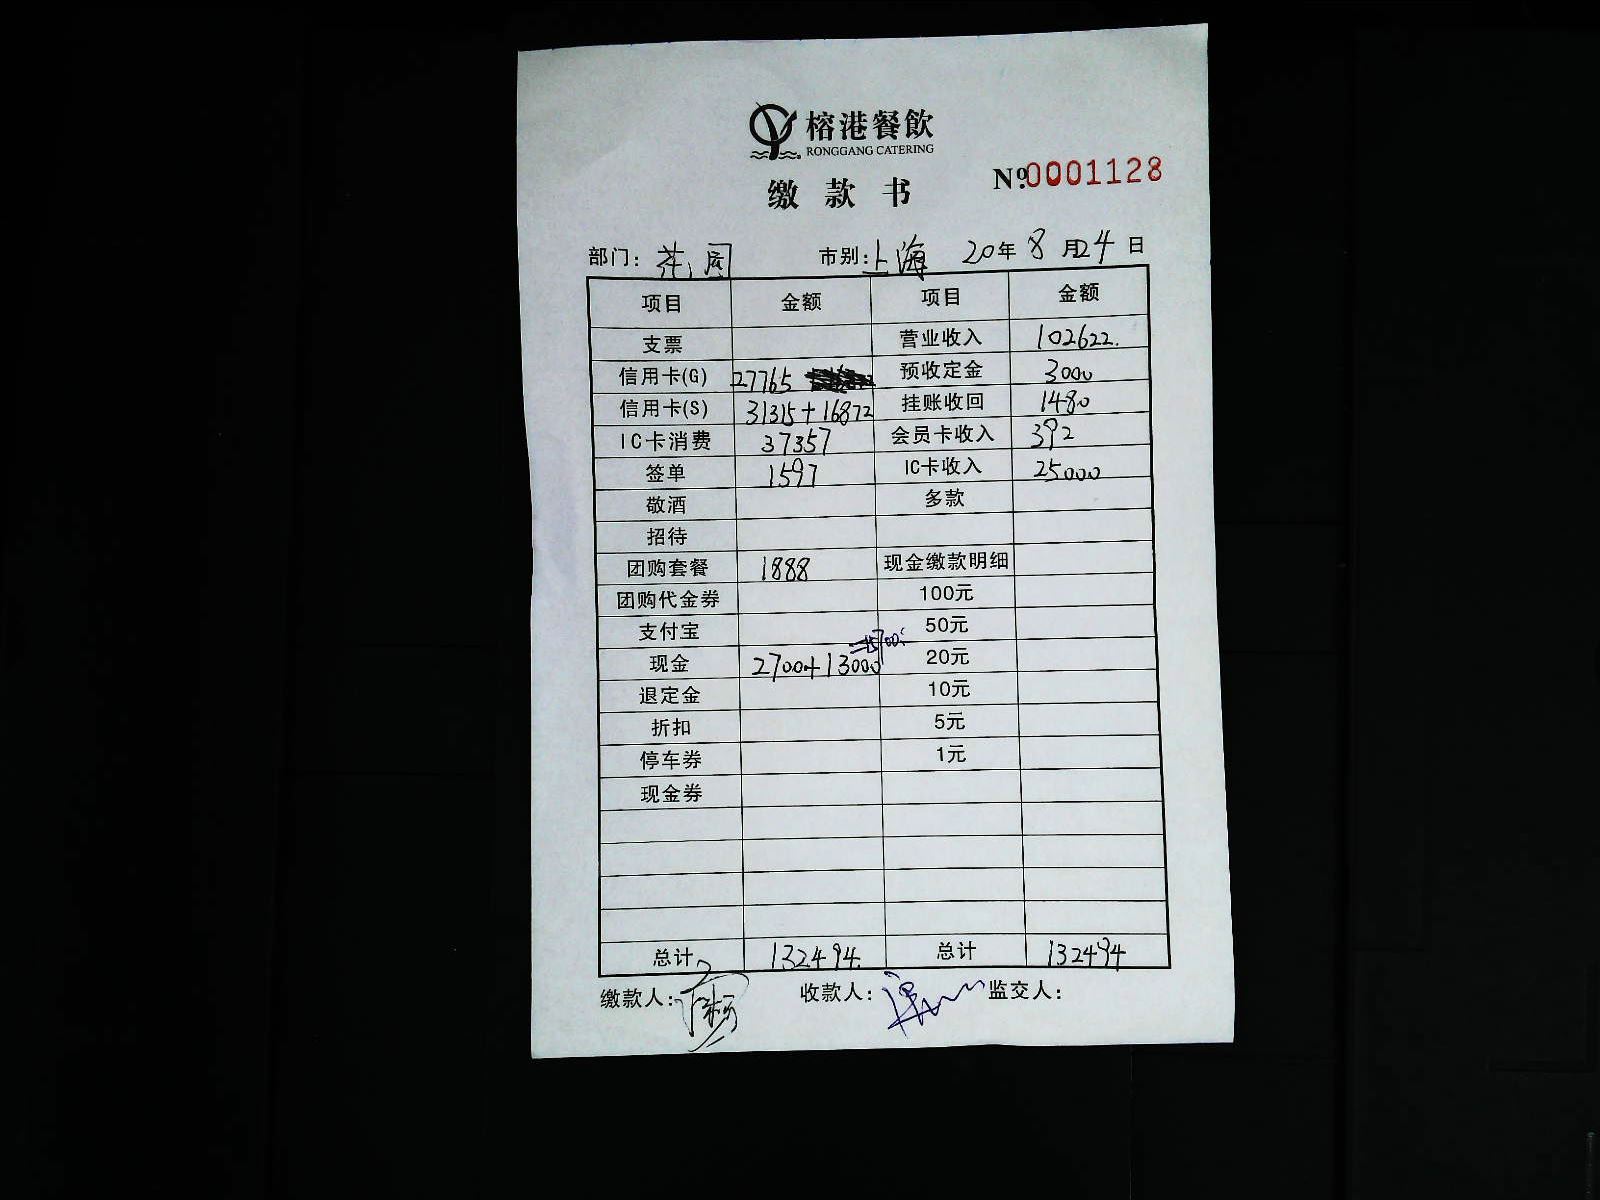 榕港餐飲
RONGGANG CATERING
缴款书
№0001128
部门： 市别：上海 20年8月24日
项目 金额 项目 金额
支票 营业收入 102622.
信用卡(G) 27765 预收定金 3000
信用卡(S) 31315+16872 挂账收回 1480
IC卡消费 37357 会员卡收入 392
签单 1597 IC卡收入 25000
敬酒 多款
招待
团购套餐 1888 现金缴款明细
团购代金券 100元
支付宝 50元
=15700.
现金 2700+13000 20元
退定金 10元
折扣 5元
停车券 1元
现金券
总计 132494. 总计 132494
缴款人： 收款人： 监交人：